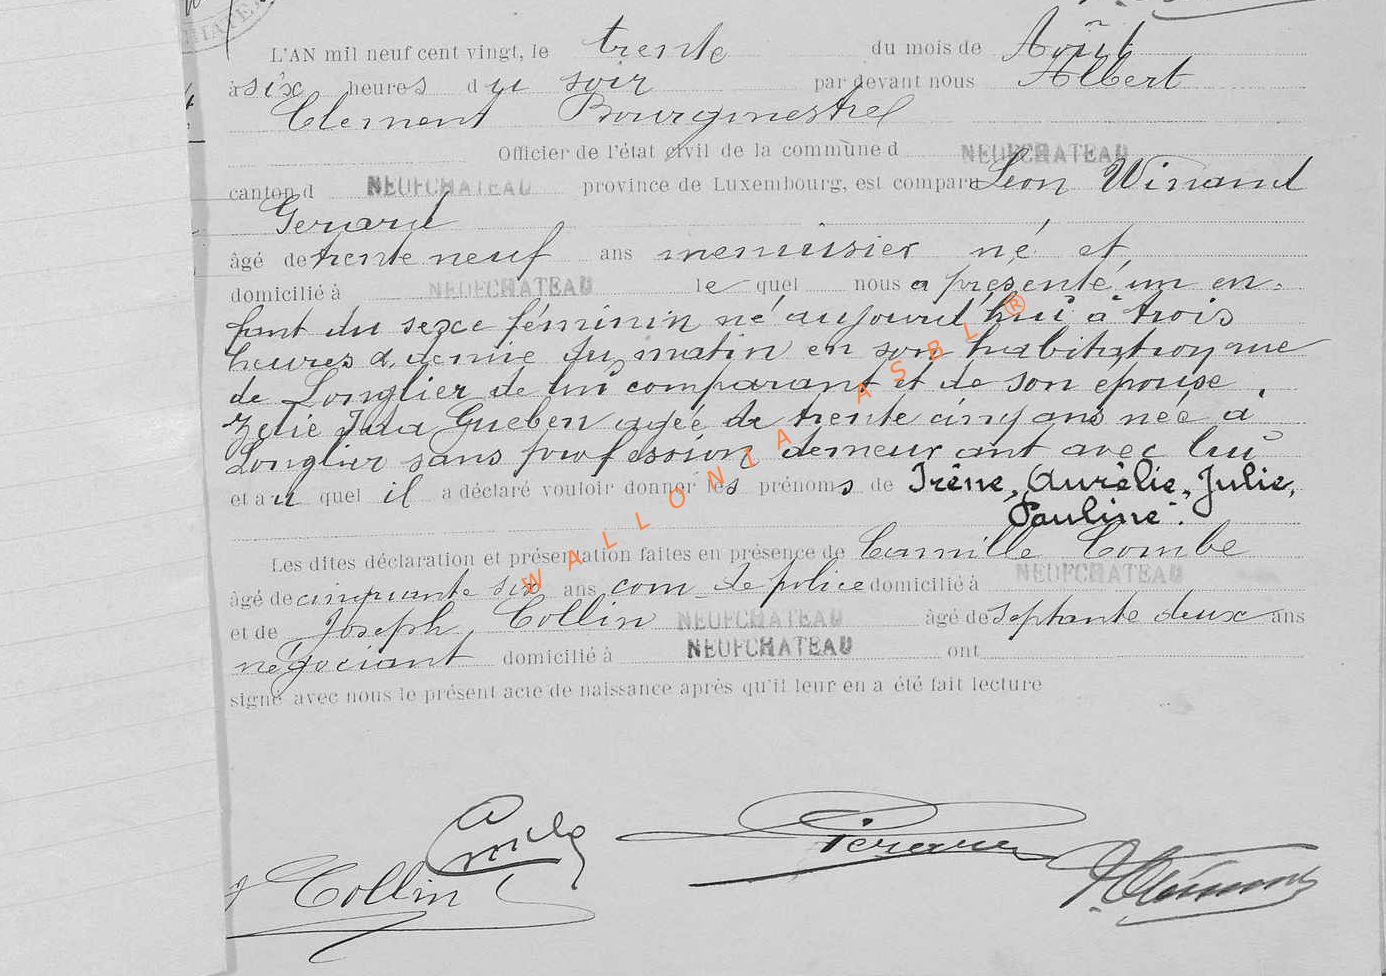 L'AN mil neuf cent vingt, le trente du mois de Août
à six heures du soir par devant nous Albert
Clement Bourgmestre
Officier de l'état civil de la commune d NEUFCHATEAU
canton d NEUFCHATEAU province de Luxembourg, est comparu Leon Winand
Gerard
âgé de trente neuf ans menuisier né et
domicilié à NEUFCHATEAU le quel nous a présenté un en-
fant du sexe féminin né aujourd'hui à trois
heures & demie du matin en son habitation rue
de Longlier de lui comparant et de son epouse
Zelie Gueben agée de trente cinq ans neé à
Longlier sans profession demeurant avec lui
et au quel il a déclaré vouloir donner les prénoms de Irène, Aurélie, Julie,
Pauline.
Les dites déclaration et présentation faites en présence de Camille Combe
âgé de cinquante six ans com de police domicilié à NEUFCHATEAU
et de Joseph Collin NEUFCHATEAU âgé de septante deux ans
négociant domicilié à NEUFCHATEAU ont
signé avec nous le présent acte de naissance après qu'il leur en a été fait lecture
J Collin
WALLONIA ASBL ®